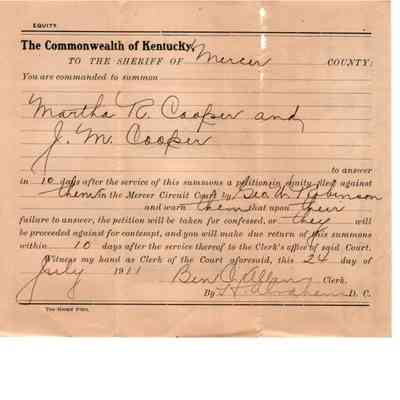 EQUITY.
The Commonwealth of Kentucky,
TO THE SHERIFF OF Mercer COUNTY:
You are commanded to summon
Martha R. Cooper and
J. M. Cooper
to answer
in 10 days after the service of this summons a petition in equity filed against
them in the Mercer Circuit Court by Geo. M. Robinson
and warn them that upon their
failure to answer, the petition will be taken for confessed, or they will
be proceeded against for contempt, and you will make due return of this summons
within 10 days after the service thereof to the Clerk's office of said Court.
Witness my hand as Clerk of the Court aforesaid, this 24 day of
July 1911 Ben Allan Clerk.
By D. C.